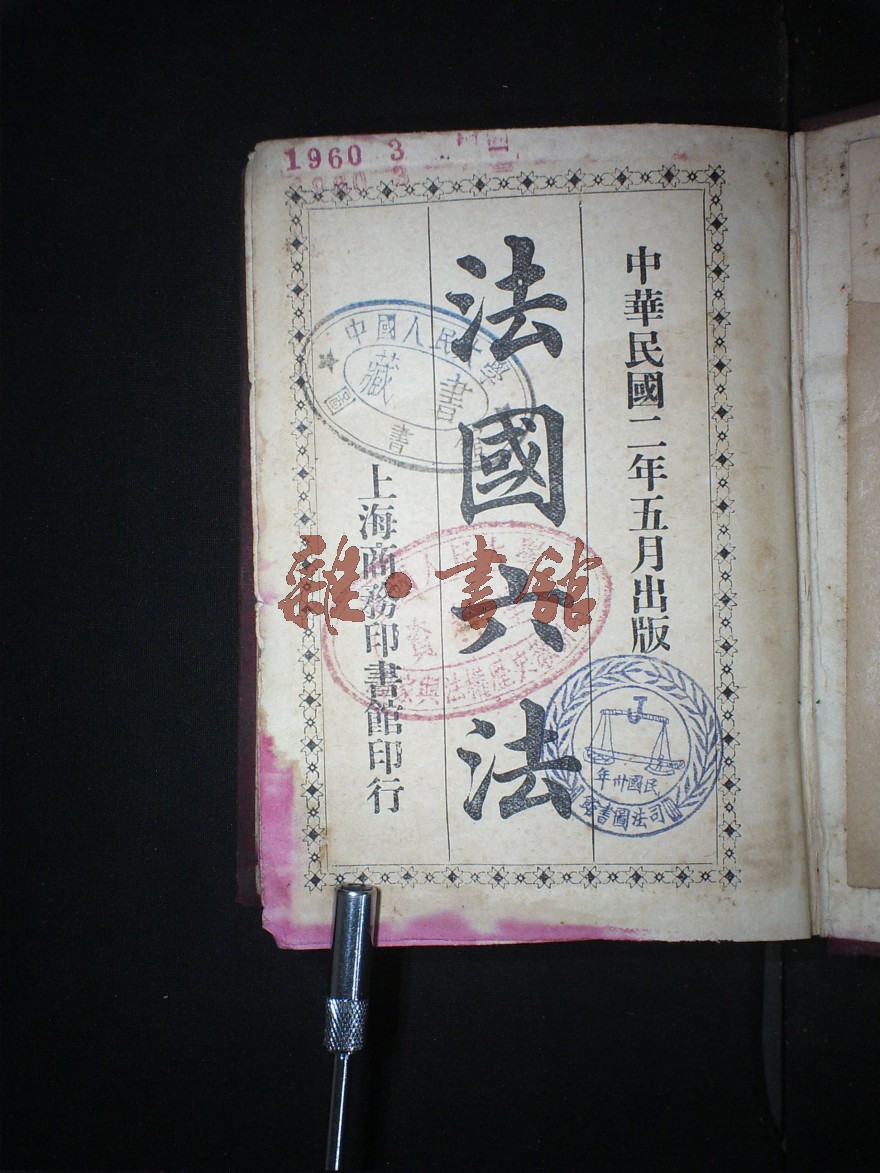 1960 3
中華民國二年五月出版
法國六法
上海商務印書館印行
中國人民大學
藏書
圖書館
雜·書館
民國卅年
司法圖書